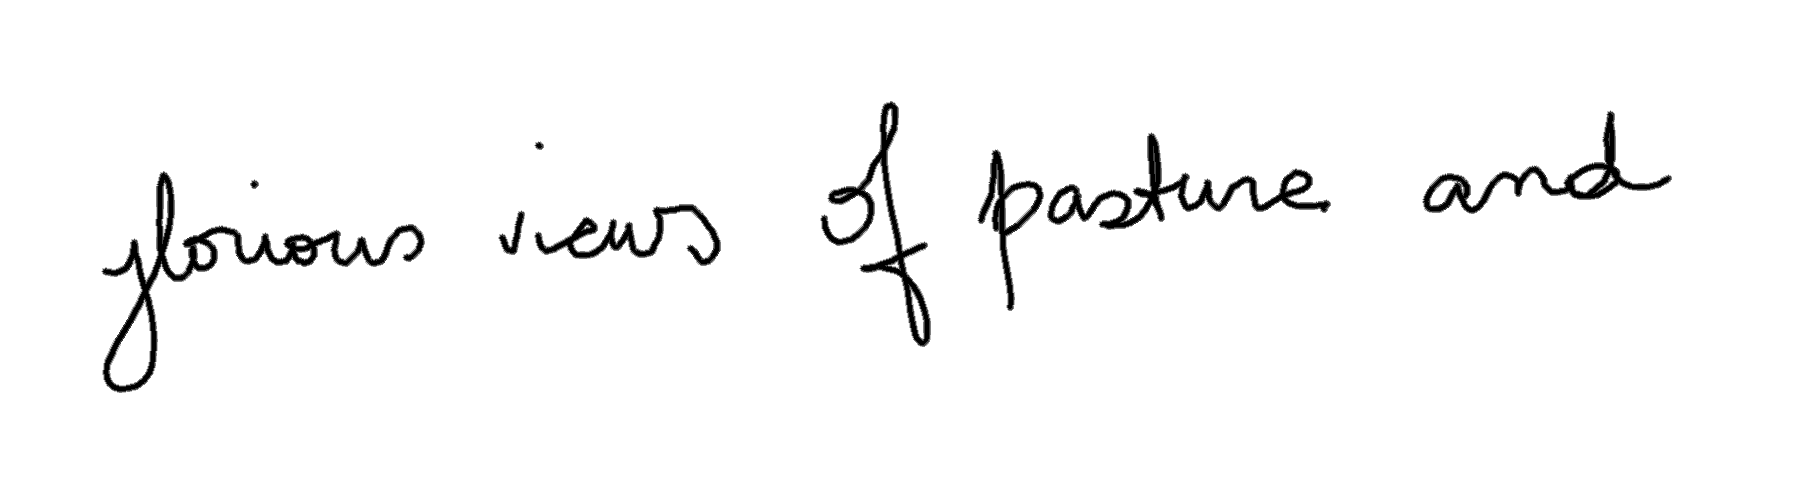 glorious views of pasture and